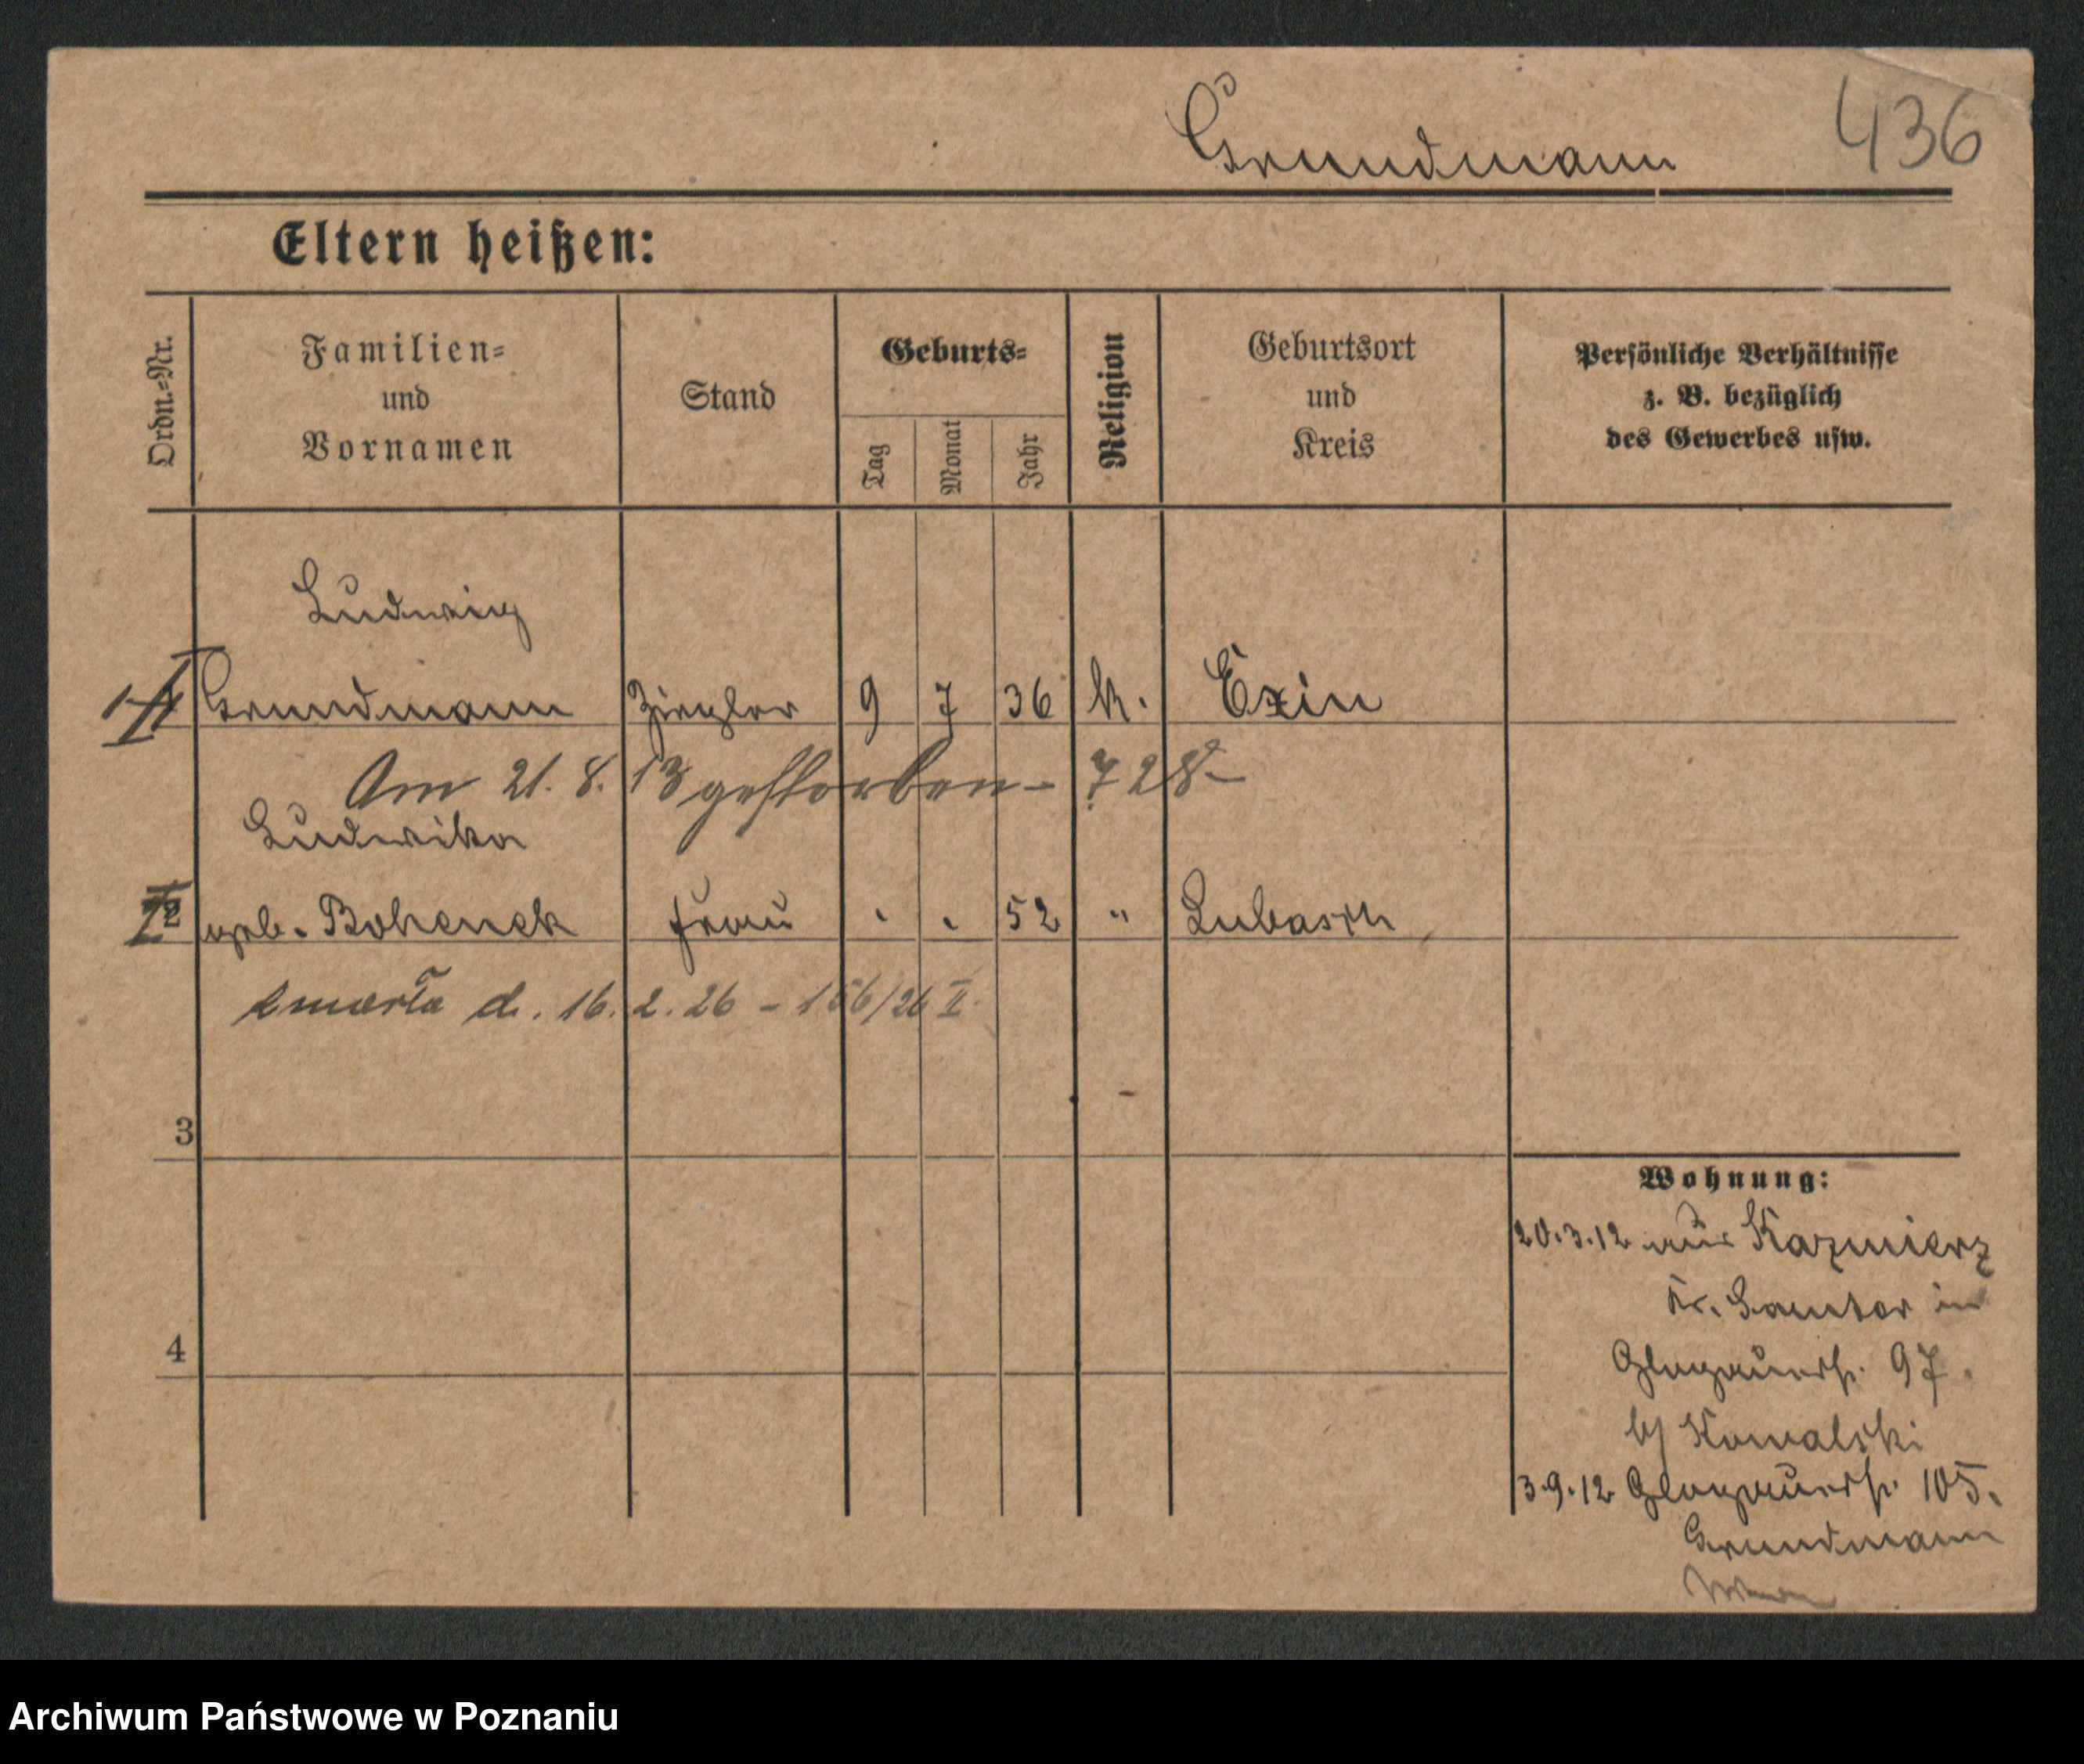 Grundmann
436
Eltern heißen:
Ordn.-Nr.
Familien-
und
Vornamen
Stand
Geburts-
Tag
Monat
Jahr
Religion
Geburtsort
und
Kreis
Persönliche Verhältnisse
z. B. bezüglich
des Gewerbes usw.
Ludwig
1 Grundmann Ziegler 9 7 36 k. Exin
Am 21. 8. 13 gestorben - 728
Ludwika
2 geb. Bohenek Frau " 52 " Lubasch
zmarła d. 16. 2. 26 - 156/26 II.
3
4
Wohnung:
20.3.12 aus Kazmierz
Kr. Samter in
Glogauerstr. 97.
b/ Kowalski
3.9.12 Glogauerstr. 105.
Grundmann
Archiwum Państwowe w Poznaniu